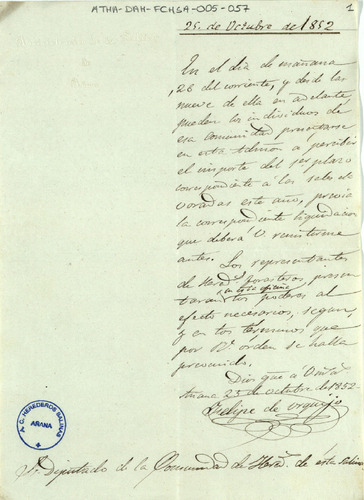 ATHA-DAH-FCHSA-005-057
1
25 de Octubre de 1852
En el dia de mañana
26 del corriente, y desde las
nueve de ella en adelante,
pueden los individuos de
esa comunidad presentarse
en esta admon a percibir
el importe del
correspondiente á las sales
este año, previa
la correspondiente liquidacion
que deberá V remitirme
antes. Los representantes
de Hered.s forasteros presen
en esta oficina
taran los poderes al
efecto necesarios, segun
y en los términos que
por Rl orden se halla
prevenido.
Dios gue a V
Añana 25 de octubre de 1852.
Felipe de Urquijo
A. C. HEREDEROS SALINAS
AÑANA
Sr Diputado de la Comunidad de Hered.s de estas Salinas